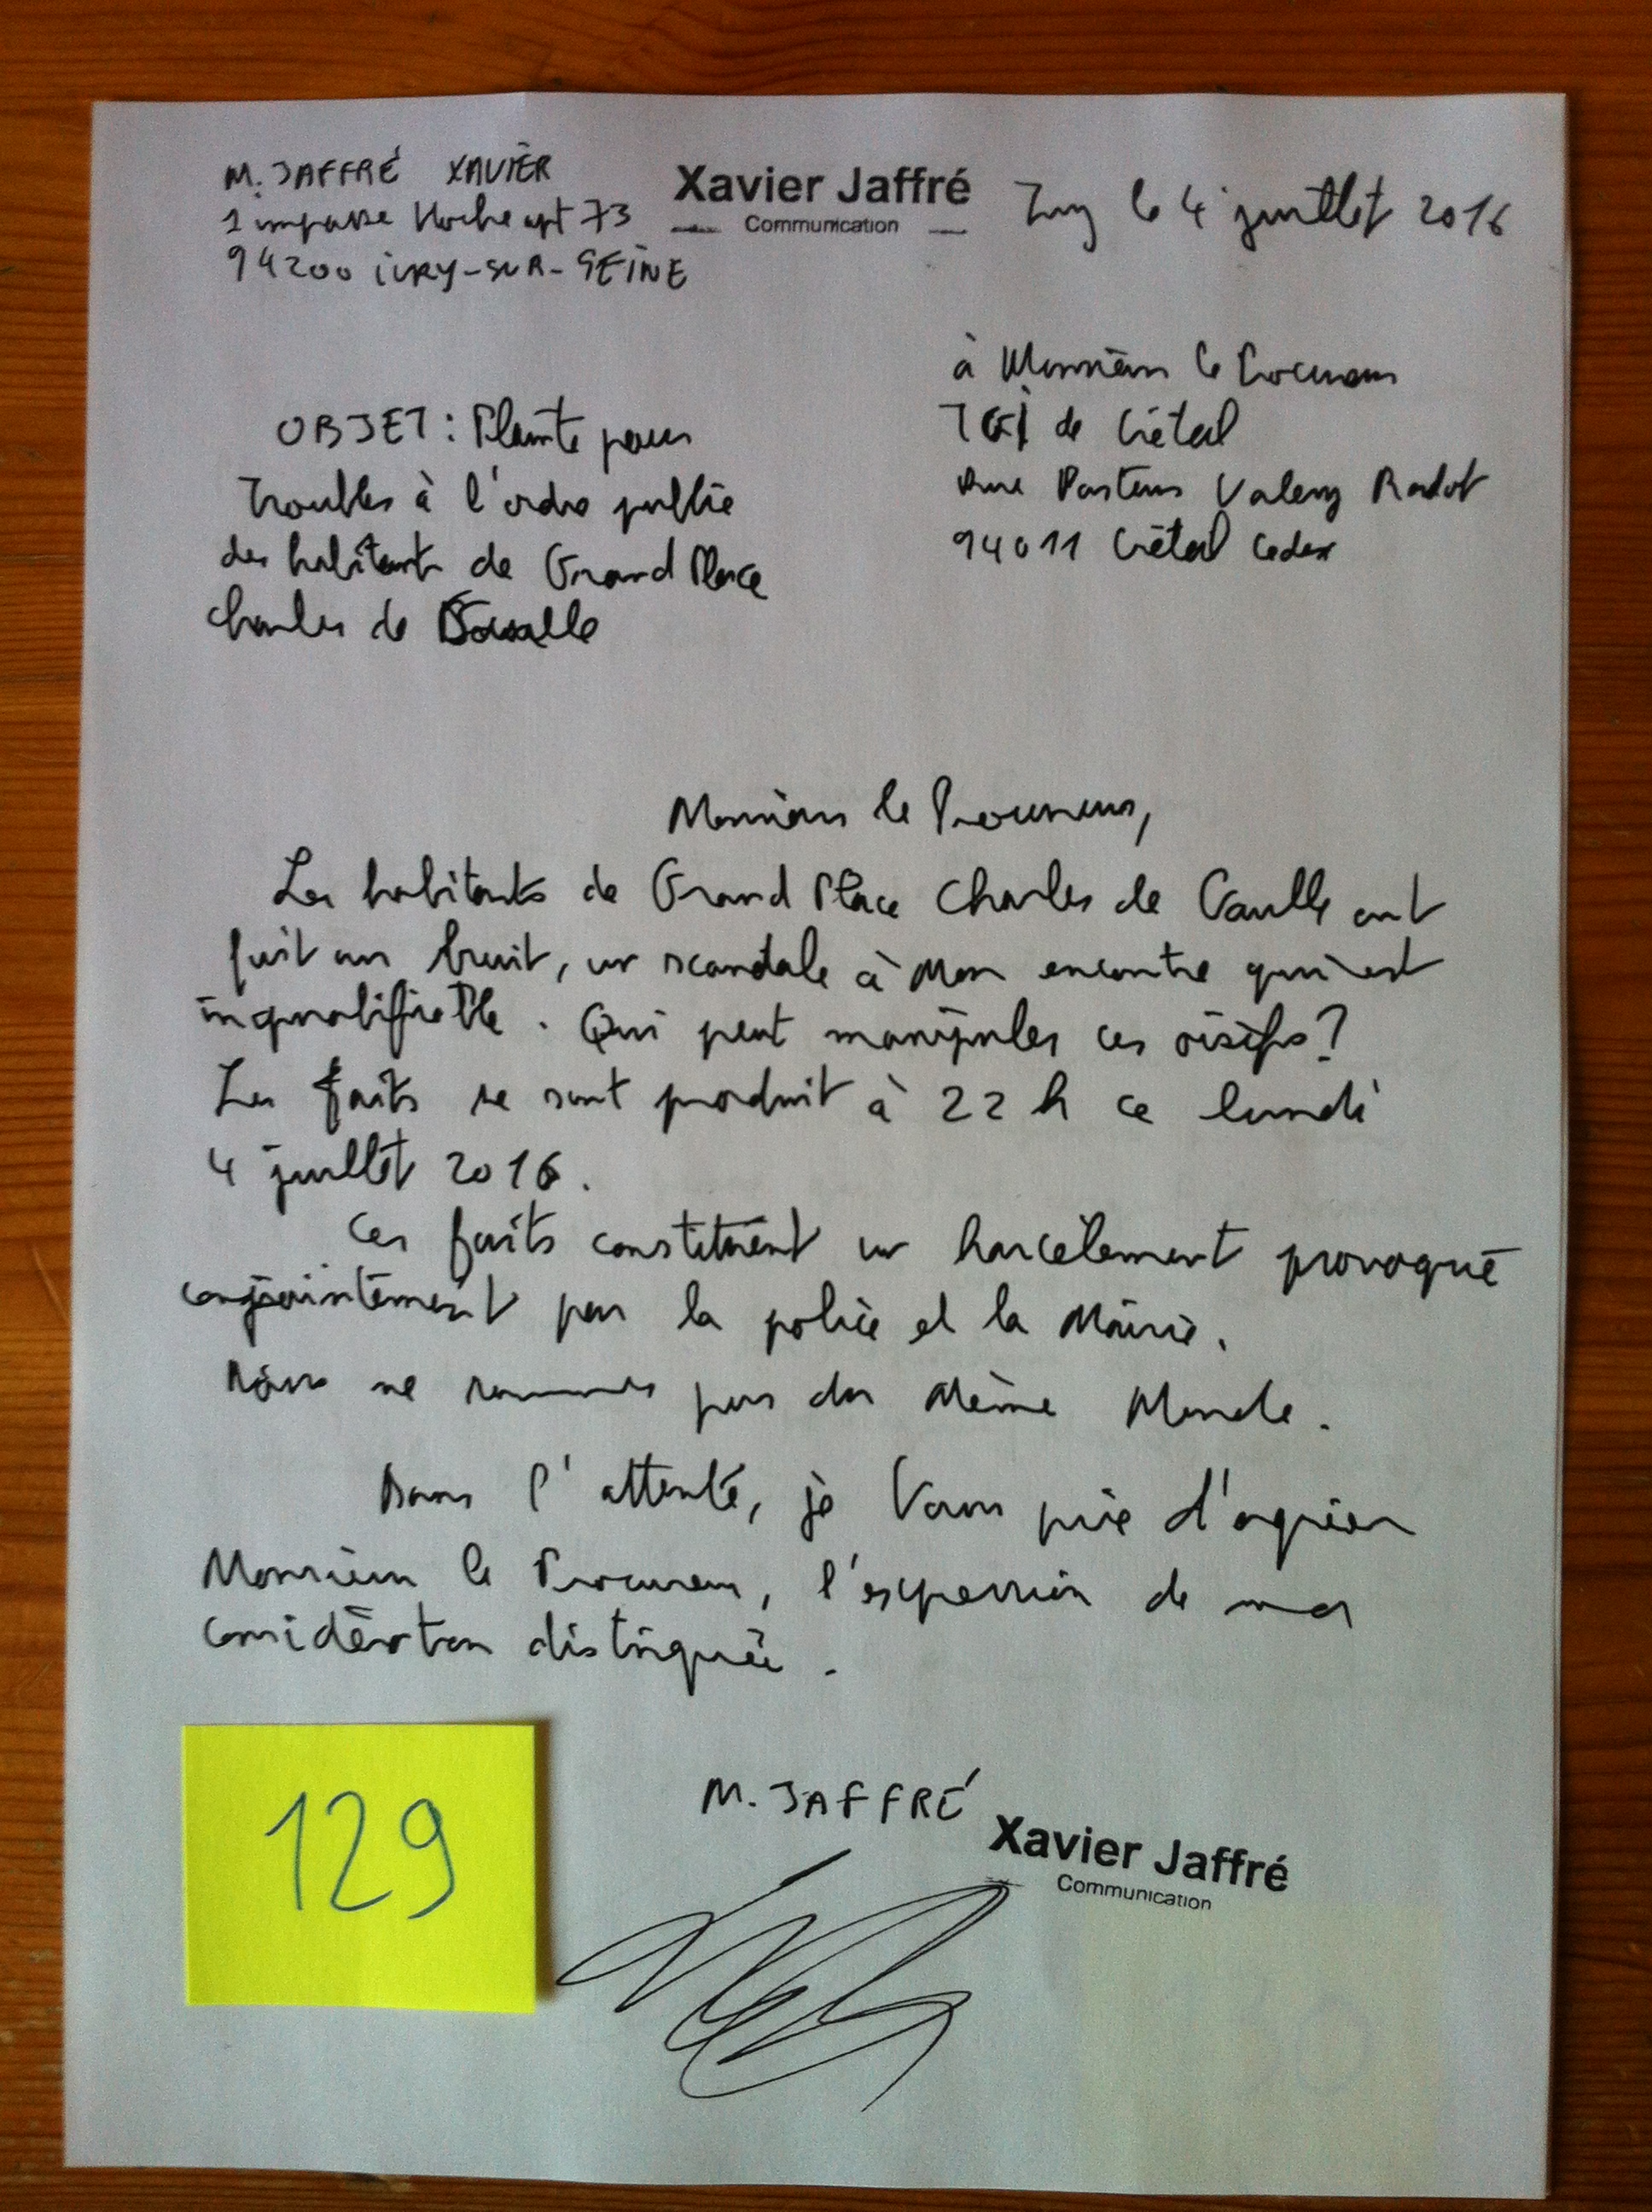 M. JAFFRÉ XAVIER
1 impasse Hoche apt 73
94200 IVRY-SUR-SEINE
Xavier Jaffré
Communication
Ivry le 4 juillet 2016
à Monsieur le Procureur
TGI de Créteil
Rue Pasteur Valery Radot
94011 Créteil Cedex
OBJET : Plainte pour
Troubles à l'ordre public
des habitants de Grand Place
Charles de Gaulle
Monsieur le Procureur,
Les habitants de Grand Place Charles de Gaulle ont
fait un bruit, un scandale à Mon encontre qui est
inqualifiable. Qui peut manipuler ces oisifs ?
Les faits se sont produit à 22 h ce lundi
4 juillet 2016.
Ces faits constituent un harcèlement provoqué
conjointement par la police et la Mairie.
Nous ne sommes pas du Même Monde.
Dans l'attente, je Vous prie d'agréer
Monsieur le Procureur, l'expression de ma
considération distinguée.
M. JAFFRÉ
Xavier Jaffré
Communication
129